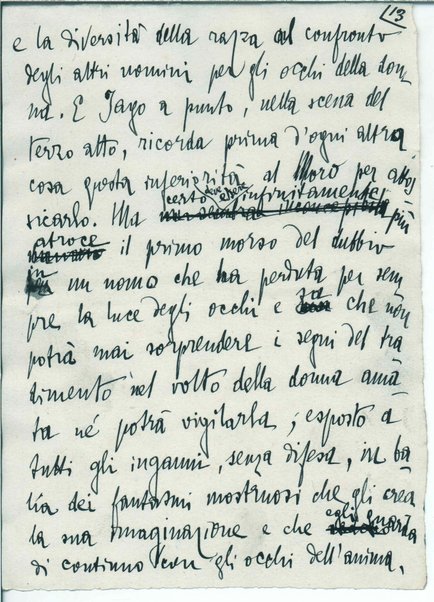 13
e la diversità della razza al confronto
degli altri uomini per gli occhi della don-
na. E Jago a punto, nella scena del
terzo atto, ricorda prima d'ogni altra
cosa questa inferiorità al Moro per attos-
sicarlo. Ma certo deve essere infinitamente più
atroce il primo morso del dubbio
in un uomo che ha perduta per sem-
pre la luce degli occhi e che non
potrà mai sorprendere i segni del tra-
dimento nel volto della donna ama-
ta né potrà vigilarla; esposto a
tutti gli inganni, senza difesa, in ba-
lìa dei fantasmi mostruosi che gli crea
la sua imaginazione e che egli guarda
di continuo con gli occhi dell'anima.